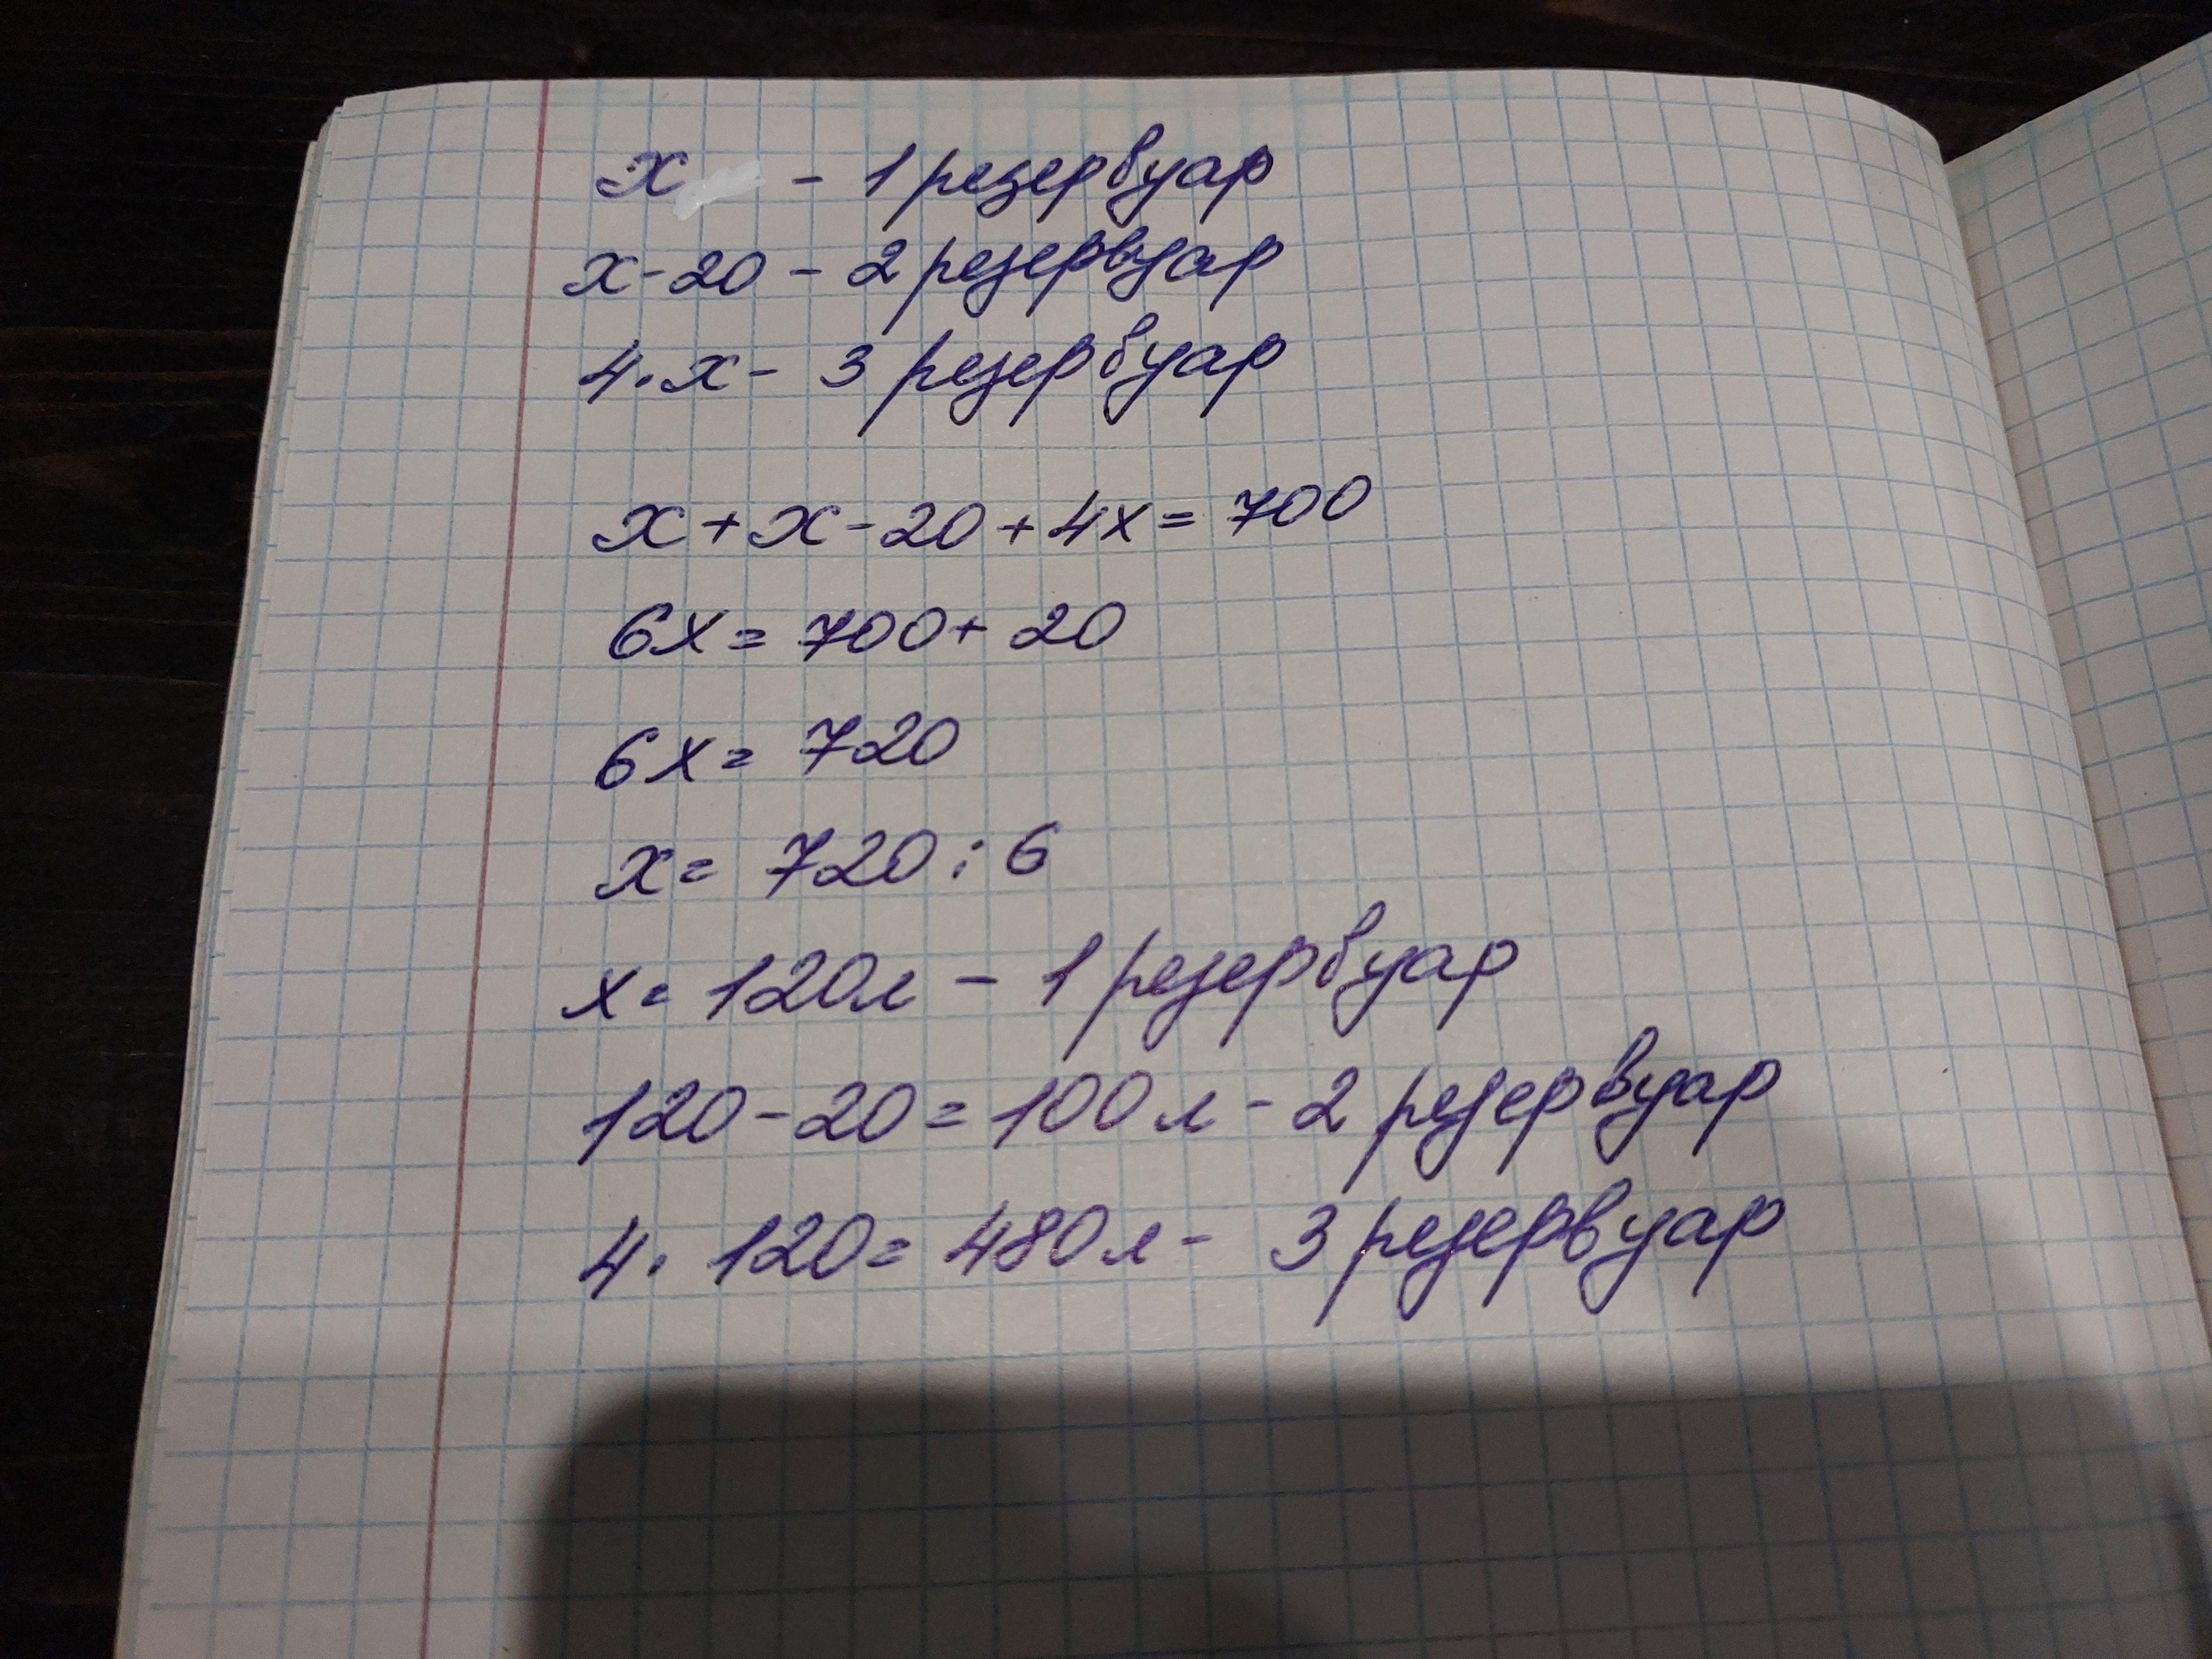 x - 1 резервуар
x - 20 - 2 резервуар
4 · x - 3 резервуар
x + x - 20 + 4x = 700
6x = 700 + 20
6x = 720
x = 720 : 6
x = 120л - 1 резервуар
120 - 20 = 100 л - 2 резервуар
4 · 120 = 480 л - 3 резервуар